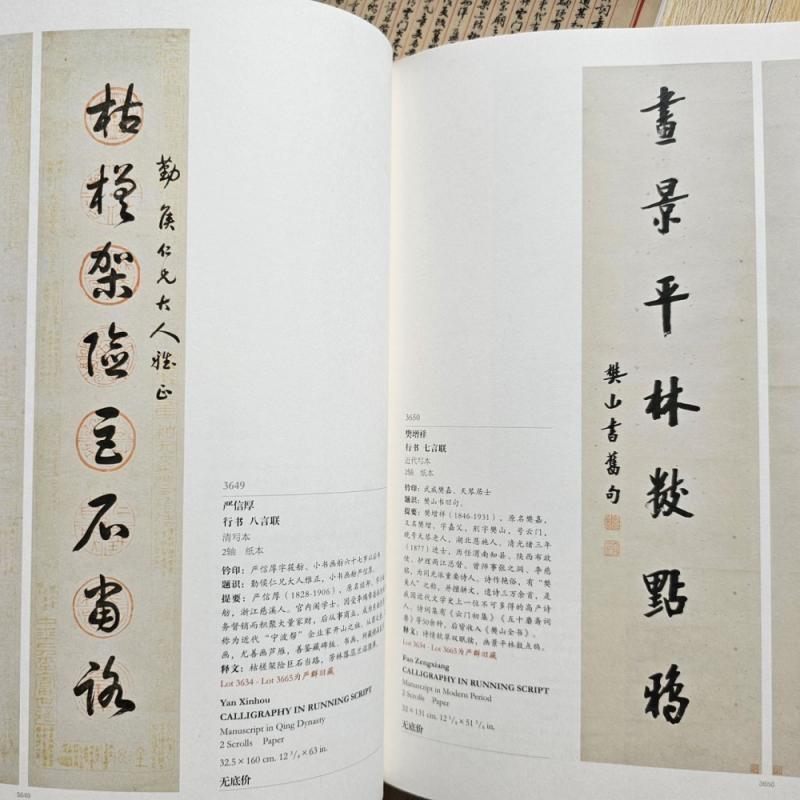 枯槎架險巨石當路
勤侯仁兄大人雅正
3649
严信厚
行书 八言联
清写本
2轴 纸本
钤印：严信厚字筱舫、小书画舫六十七岁以后书
题识：勤侯仁兄大人雅正，小书画舫严信厚。
提要：严信厚（1828-1906），原名经邦，字筱
舫，浙江慈溪人。
称为近代“宁波帮”企业家开山之祖。
画，尤善画芦雁，善鉴藏碑板、书画，
释文：枯槎架险巨石当路，芳林落蕊
Lot 3634 - Lot 3665为严群旧藏
Yan Xinhou
CALLIGRAPHY IN RUNNING SCRIPT
Manuscript in Qing Dynasty
2 Scrolls Paper
32.5 × 160 cm. 12 3/4 × 63 in.
无底价
3649
畫景平林數點鴉
樊山書舊句
3650
樊增祥
行书 七言联
近代写本
2轴 纸本
钤印：武威樊嘉、天琴居士
题识：樊山书旧句。
提要：樊增祥（1846-1931），原名樊嘉，
又名樊增，字嘉父，别字樊山，号云门，
晚号天琴老人，湖北恩施人。清光绪三年
（1877）进士，历任渭南知县、陕西布政
使、护理两江总督。曾师事张之洞、李慈
铭，为同光派重要诗人。诗作艳俗，有“樊
美人”之称，并擅骈文，遗诗三万余首，是
我国近代文学史上一位不可多得的高产诗
人。诗词集有《云门初集》《五十麝斋词
赓》等50余种，后皆收入《樊山全书》。
释文：诗情款草双眠犊，画景平林数点鸦。
Lot 3634 - Lot 3665为严群旧藏
Fan Zengxiang
CALLIGRAPHY IN RUNNING SCRIPT
Manuscript in Modern Period
2 Scrolls Paper
32 × 131 cm. 12 5/8 × 51 5/8 in.
无底价
3650